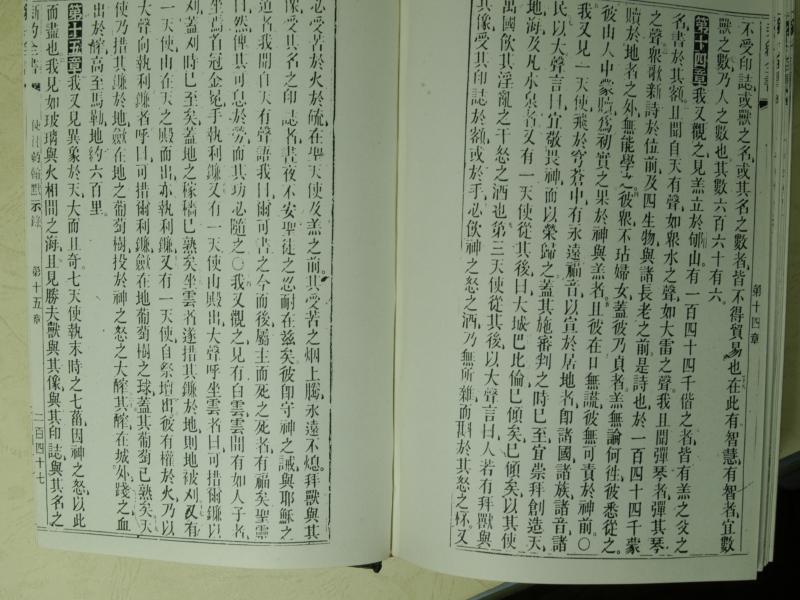 不受印誌或獸之名或其名之數者皆不得貿易也在此有智慧有智者宜數
獸之數乃人之數也其數六百六十有六
第十四章我又觀之見羔立於郇山有一百四十四千偕之者皆有羔之父之
名書於其額且聞自天有聲如衆水之聲如大雷之聲我且聞彈琴者彈其琴
之聲衆歌新詩於位前及四生物與諸長老之前是詩也於一百四十四千蒙
贖於地者之外無能學之彼衆不玷婦女蓋彼乃貞者羔無論何往彼悉從之
彼由人中蒙贖爲初實之果於神與羔者且彼在口無謊彼無可責於神前〇
我又見一天使飛於穹蒼中有永遠福音以宣於居地者卽諸國諸族諸音諸
民以大聲言曰宜敬畏神而以榮歸之蓋其施審判之時已至宜崇拜創造天
地海及凡水泉者又有一天使從其後曰大城巴比倫已傾矣已傾矣以其使
萬國飲其淫亂之干怒之酒也第三天使從其後以大聲言曰人若有拜獸與
其像受其印誌於額或於手必飲神之怒之酒乃無所雜而斟於其怒之杯又
第十四章
必受苦於火於硫在聖天使及羔之前其受苦之烟上騰永遠不熄拜獸與其
像受其名之印誌者晝夜不安聖徒之忍耐在茲矣彼卽守神之誡與耶穌之
道者我聞自天有聲語我曰爾可書之今而後屬主而死之者有福矣聖靈
曰然俾其可息於勞而其功必隨之〇我又觀之見有白雲雲間有如人子者
坐焉首冠金冕手執利鐮又有一天使由殿出大聲呼坐雲者曰可措爾鐮
刈蓋刈時已至矣蓋地之稼穡已熟矣坐雲者遂措其鐮於地則地被刈又有
一天使由在天之殿而出亦執利鐮又有一天使自祭壇出彼有權於火乃以
大聲向執利鐮者呼曰可措爾利鐮斂在地葡萄樹之球蓋其葡萄已熟矣天
使乃措其鐮於地斂在地之葡萄樹投於神之怒之大醡其醡在城外踐之血
出於醡高至馬勒地約六百里
第十五章我又見異象於天大而且奇七天使執末時之七菑因神之怒以此
而盡也我見如玻璃與火相間之海且見勝夫獸與其像與其印誌與其名之
新約全書 使徒約翰默示錄 第十五章 二百四十七